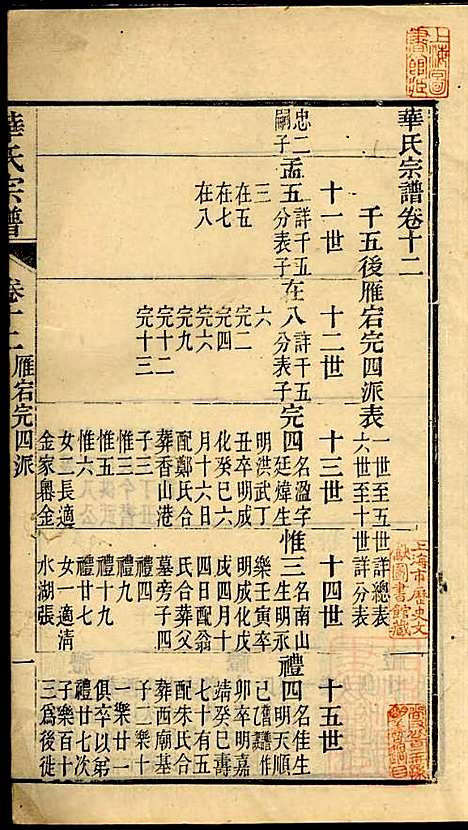 上海圖書館藏
華氏宗譜卷十二
千五後雁宕完四派表 一世至五世詳總表 六世至十世詳分表
上海市歷史文獻圖書館藏
十一世 十二世 十三世 十四世 十五世
忠二嗣子 孟五 詳千五分表子 在八 詳千五分表子 完四 名溫字廷煒生 惟三 名南山生明永 禮四 名佳生明天順
三 六 明洪武丁 樂壬寅卒
在五 完二 丑卒明成 明成化戊 卯卒明嘉
在七 完四 化癸巳六 戌四月十 靖癸巳壽
在八 完六 月十六日 四日配翁 七十有五
完九 配鄭氏合 氏合葬父 配朱氏合
完十二 葬香山港 墓旁子四 葬西廟基
完十三 子三 禮四 子二樂十
惟三 禮九 一樂廿一
惟五 禮十九 俱卒以弟
惟六 禮廿七 禮廿七次
女一長適 女一適清 子樂百十
金家嶴金 水湖張 三爲後徙
華氏宗譜 卷十二 雁宕完四派 一